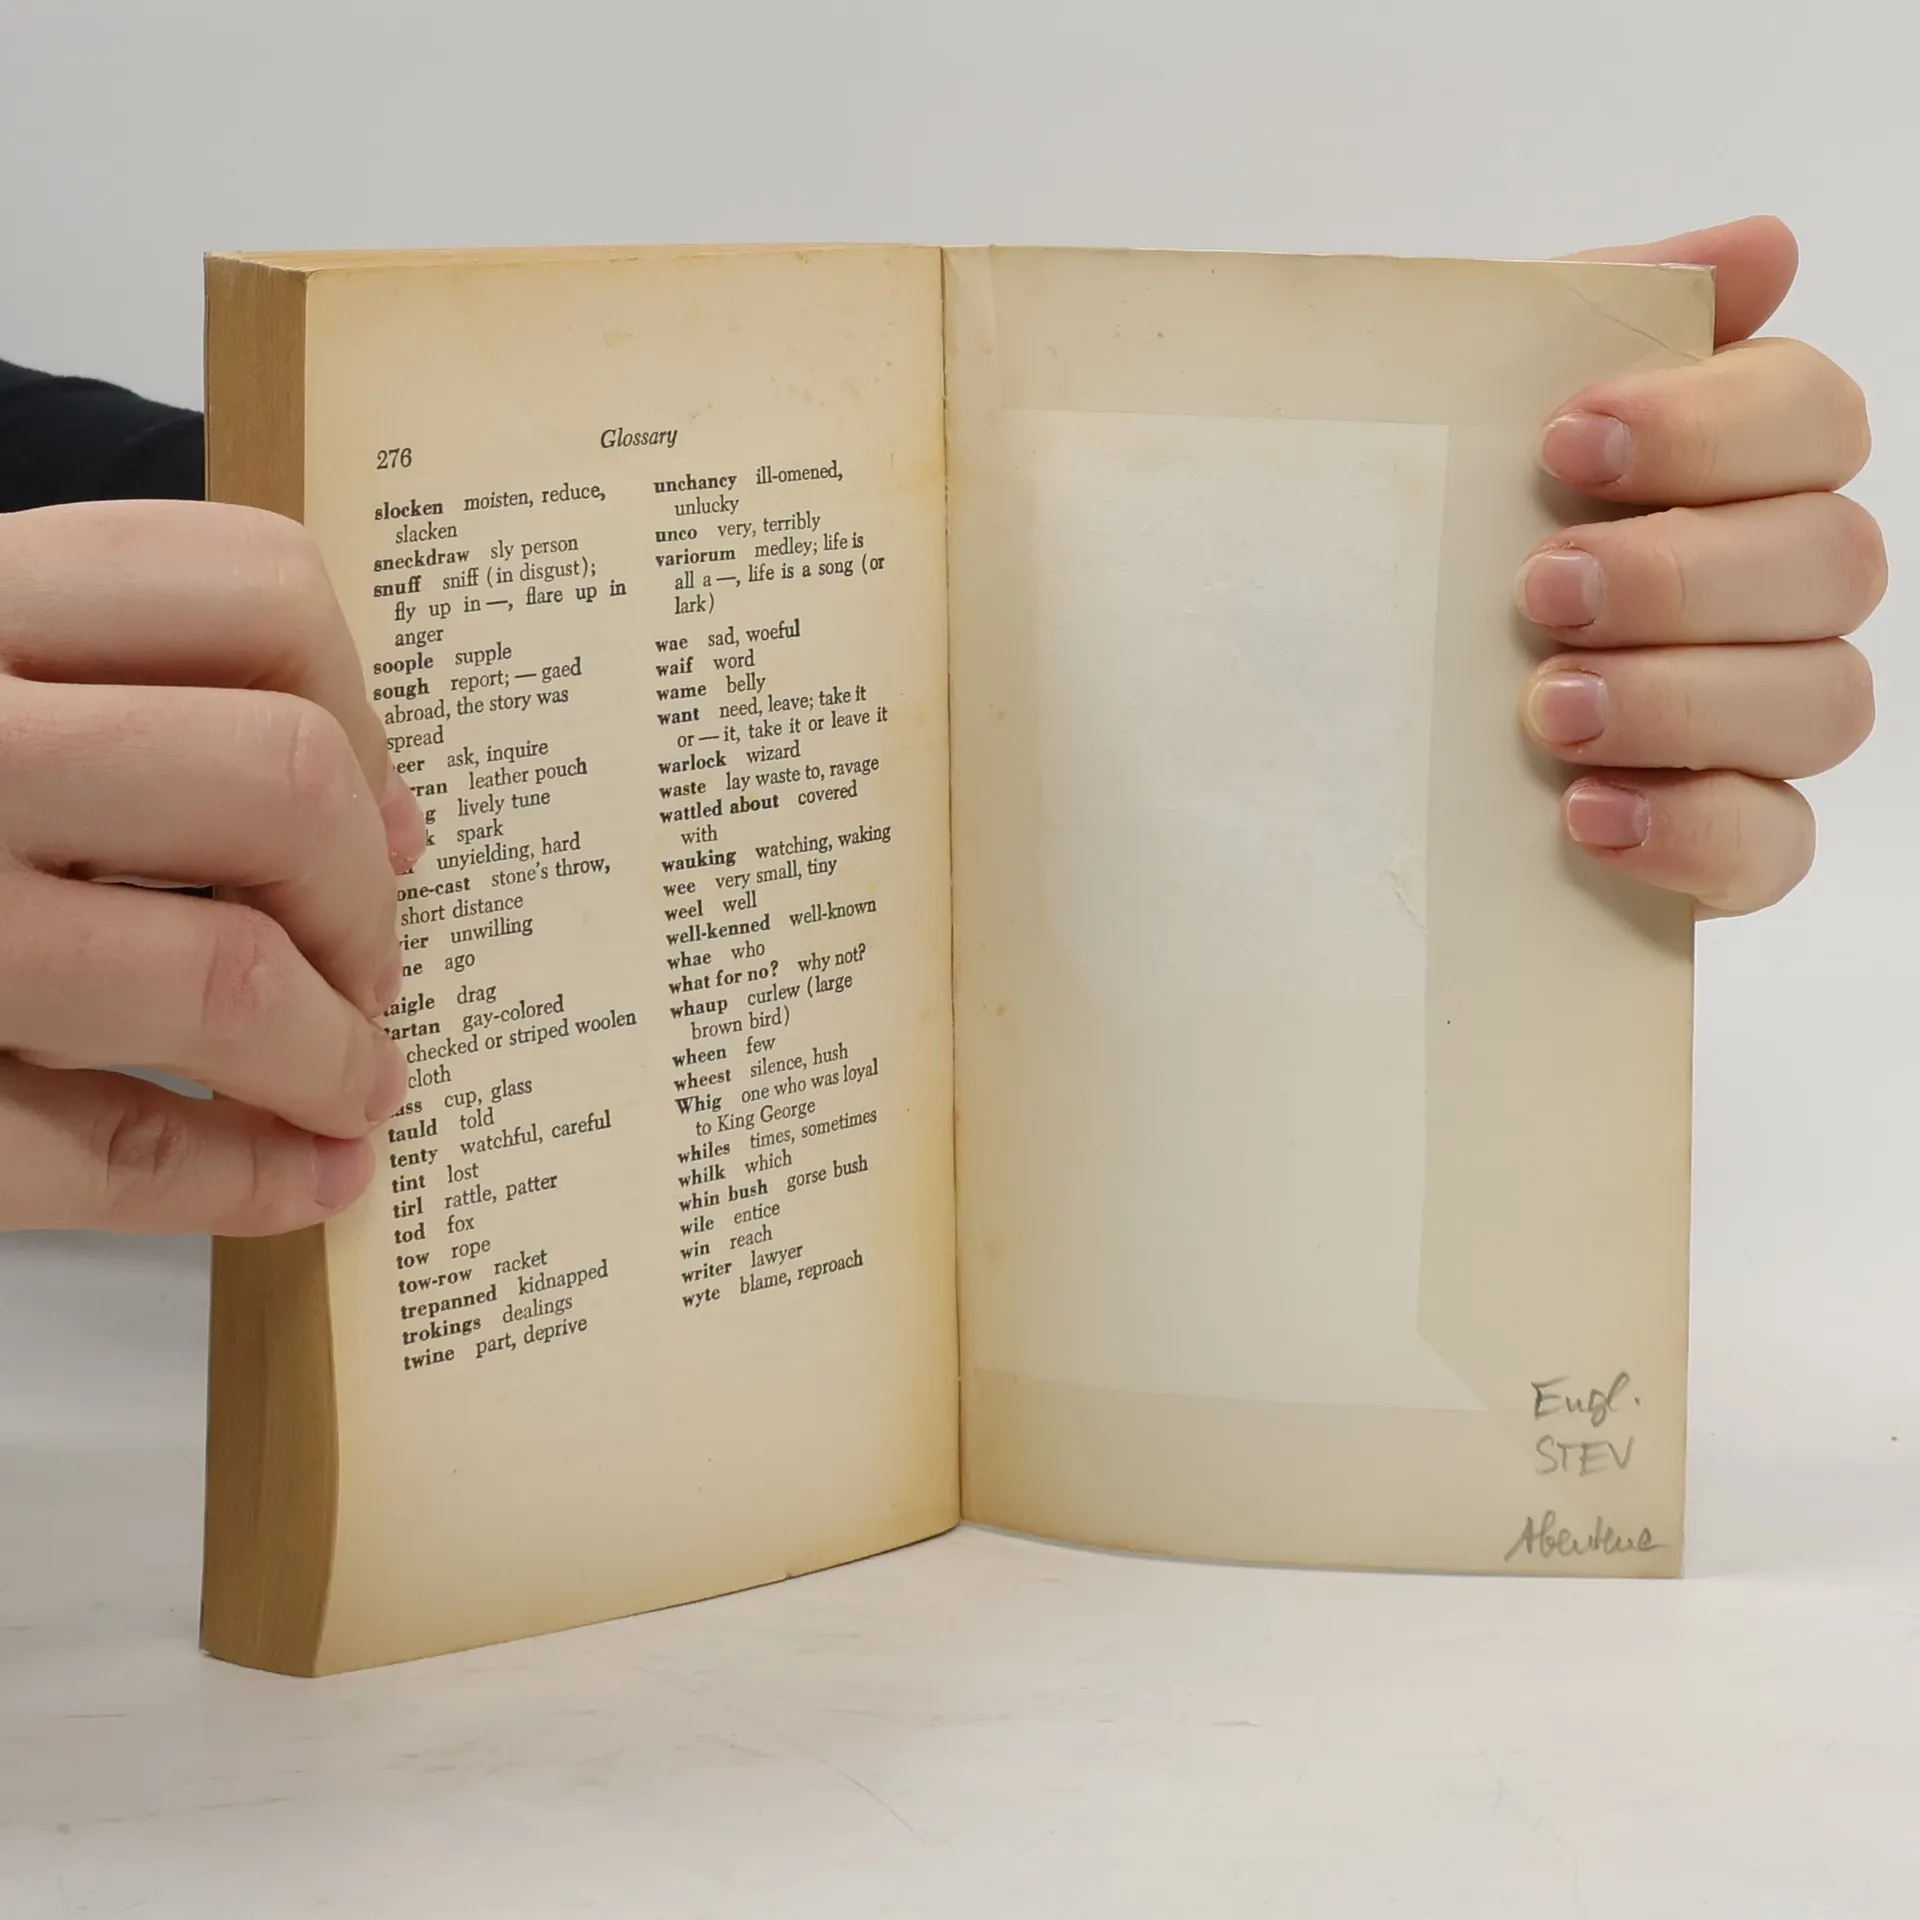 276
Glossary
slocken moisten, reduce,
slacken
sneckdraw sly person
snuff sniff (in disgust);
fly up in —, flare up in
anger
soople supple
sough report; — gaed
abroad, the story was
spread
eer ask, inquire
rran leather pouch
g lively tune
k spark
unyielding, hard
one-cast stone's throw,
short distance
ier unwilling
ne ago
taigle drag
tartan gay-colored
checked or striped woolen
cloth
ass cup, glass
tauld told
tenty watchful, careful
tint lost
tirl rattle, patter
tod fox
tow rope
tow-row racket
trepanned kidnapped
trokings dealings
twine part, deprive
unchancy ill-omened,
unlucky
unco very, terribly
variorum medley; life is
all a —, life is a song (or
lark)
wae sad, woeful
waif word
wame belly
want need, leave; take it
or — it, take it or leave it
warlock wizard
waste lay waste to, ravage
wattled about covered
with
wauking watching, waking
wee very small, tiny
weel well
well-kenned well-known
whae who
what for no? why not?
whaup curlew (large
brown bird)
wheen few
wheest silence, hush
Whig one who was loyal
to King George
whiles times, sometimes
whilk which
whin bush gorse bush
wile entice
win reach
writer lawyer
wyte blame, reproach
Engl.
STEV